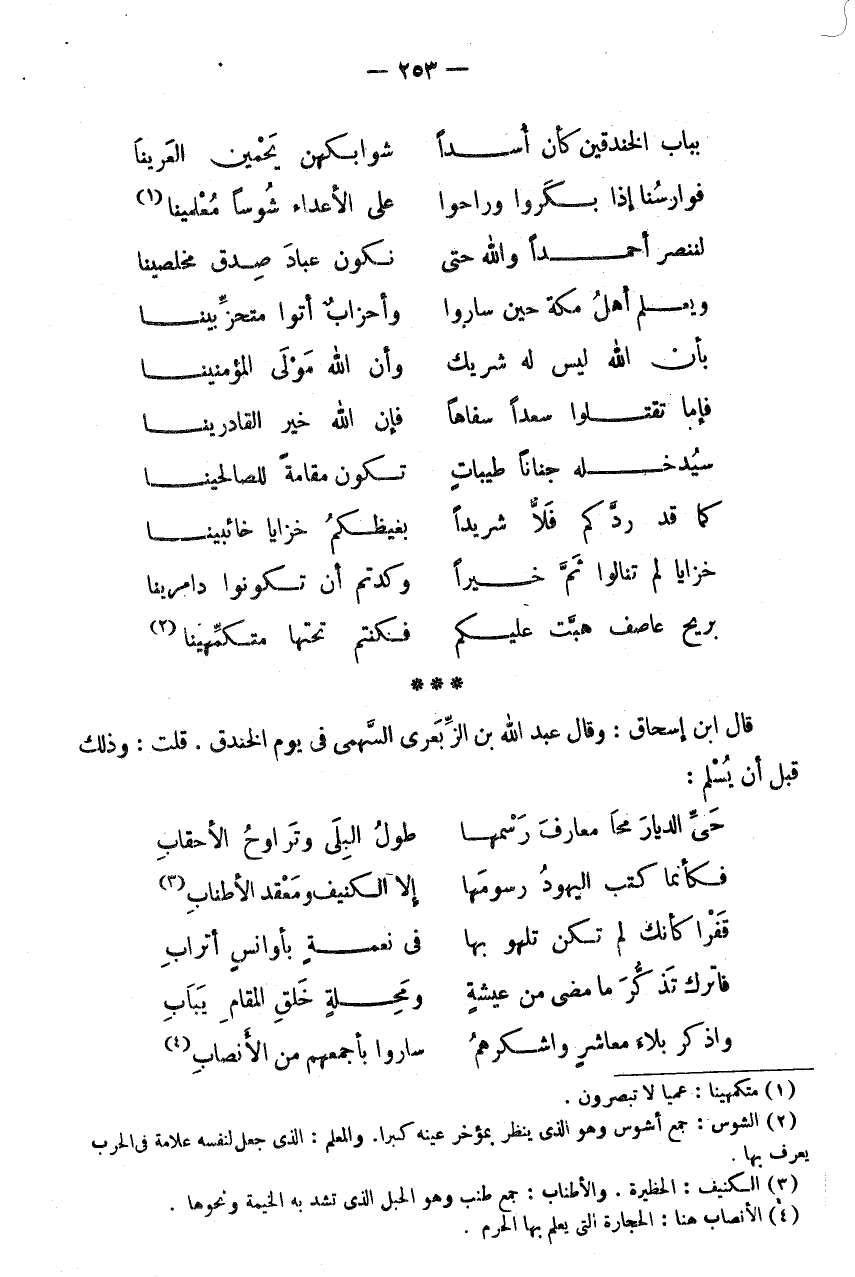 — ٢٥٣ —
بباب الخندقين كأن أُسداً شوابكهن يَحْمين العَرينا
فوارسُنا إذا بكَروا وراحوا على الأعداء شُوساً مُعْلمينا (١)
لننصر أحمداً والله حتى نكون عبادَ صِدق مخلصينا
ويعلم أهلُ مكة حين ساروا وأحزابٌ أتوا متحزِّبينا
بأن الله ليس له شريك وأن الله مَوْلَى المؤمنينا
فإما تقتلوا سعداً سفاهاً فإن الله خير القادرينا
سيُدخله جناناً طيباتٍ تكون مقامةً للصالحينا
كما قد ردَّكم فَلاًّ شريداً بغيظكمُ خزايا خائبينا
خزايا لم تنالوا ثَمَّ خيراً وكدتم أن تكونوا دامرينا
بريح عاصف هبَّت عليكم فكنتم تحتها متكمِّهينا (٢)
***
قال ابن إسحاق : وقال عبد الله بن الزِّبَعرى السَّهمى فى يوم الخندق . قلت : وذلك
قبل أن يُسْلم :
حَىِّ الديارَ محَا معارفَ رَسْمها طولُ البِلَى وتَراوحُ الأحقابِ
فكأنما كتب اليهودُ رسومَها إلا الكنيف ومَعْقد الأطنابِ (٣)
قَفْرا كأنك لم تكن تلهو بها فى نعمةٍ بأوانسٍ أترابِ
فاترك تَذكُّرَ ما مضى من عيشةٍ ومَحِلةٍ خَلَقِ المقامِ يَبَابِ
واذكر بلاءَ معاشرٍ واشكرهمُ ساروا بأجمعهم من الأَنصابِ (٤)
(١) متكمهينا : عميا لا تبصرون .
(٢) الشوس : جمع أشوس وهو الذى ينظر بمؤخر عينه كبرا. والمعلم : الذى جعل لنفسه علامة فى الحرب
يعرف بها .
(٣) الكنيف : الحظيرة . والأطناب : جمع طنب وهو الحبل الذى تشد به الخيمة ونحوها .
(٤) الأنصاب هنا : الحجارة التى يعلم بها الحرم .